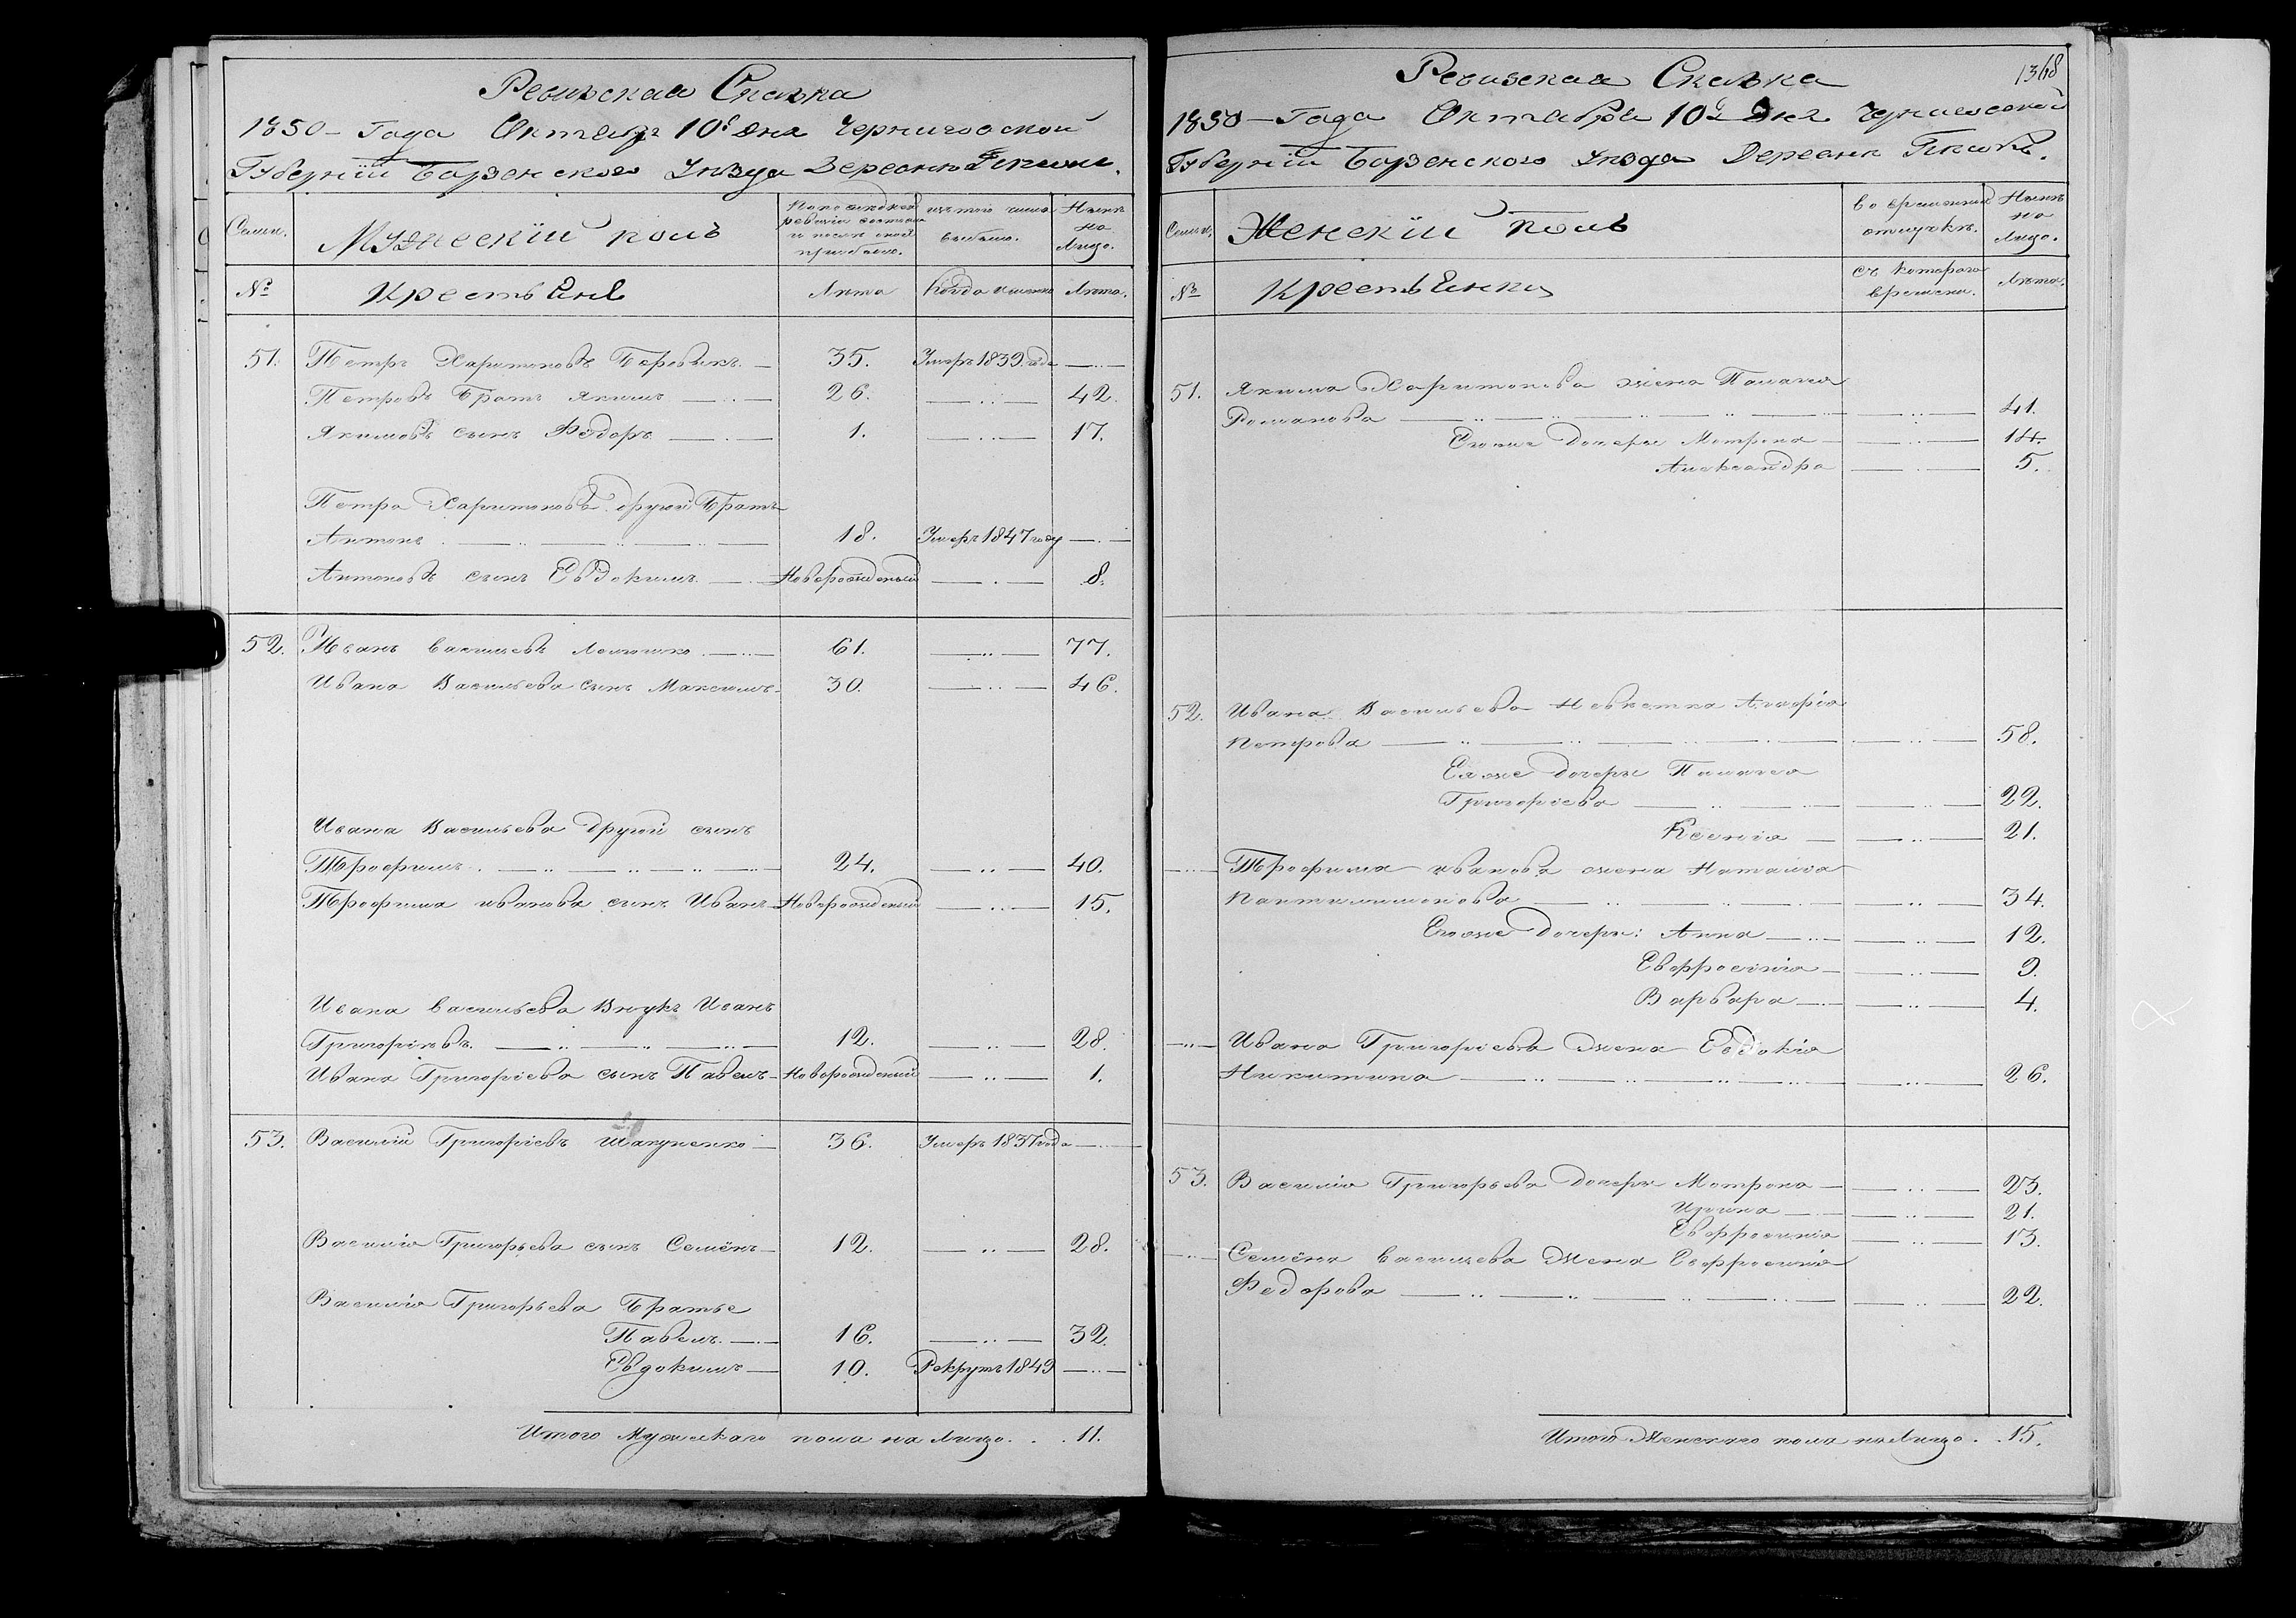 Ревизская Сказка
1850 – Года Октября 10г дня Черниговской
Губернiи Борзенского Уезда Деревни
Семьи.
Мужескiй полъ
По последней
ревизiи состояло
и после оной
прибыло.
изъ того числа
выбыло.
Ныне
на
Лицо.
№
Крестьяне
Лета
Когда именно
Лета.
51. Петръ Харитоновъ 35. Умеръ 1839 года
Петровъ Братъ Якимъ 26. 42.
Якимовъ сынъ Федоръ 1. 17.
Петра Харитоновъ другой Братъ
Антонъ 18. Умеръ 1847 году
Антоновъ сынъ Евдокимъ Новорожденный 8.
52. Иванъ Васильевъ 61. 77.
Ивана Васильева сынъ Максимъ 30. 46.
Ивана Васильева другой сынъ
Трофимъ 24. 40.
Трофима иванова сынъ Иванъ Новорожденный 15.
Ивана Васильева Внукъ Иванъ
Григорiевъ 12. 28.
Ивана Григорiева сынъ Павелъ Новорожденный 1.
53. Василiй Григорiевъ Шакуненко 36. Умеръ 1837 года
Василiя Григорьева сынъ Семёнъ 12. 28.
Василiя Григорьева Братье
Павелъ 16. 32.
Евдокимъ 10. Рекрутъ 1849
Итого Мужескаго пола на лицо . . . 11.
1368
Ревизская Сказка
1850 – Года Октября 10г Дня Черниговской
Губернiи Борзенского Уезда Деревни
Семьи.
Женскiй полъ
во временной
отлучке.
Ныне
на
Лицо.
№
Крестьянки
съ которого
времени.
Лета.
51. Якима Харитонова жена Палагiя
Романова 41.
Егоже Дочери Мотрона 14.
Александра 5.
52. Ивана Васильева Невестка Агафiя
Петрова 58.
Ея же Дочери Палагея
Григорiева 22.
Ксенiя 21.
Трофима иванова жена Наталiя
Пантилимонова 34.
Егоже Дочери: Анна 12.
Евфросинiя 9.
Варвара 4.
Ивана Григорiева Жена Евдокiя
Никитина 26.
53. Василiя Григорьева Дочери Мотрона 23.
Ирина 21.
Евфросинiя 13.
Семёна Васильева Жена Евфросинiя
Федорова 22.
Итого Женского пола на лицо . . 15.